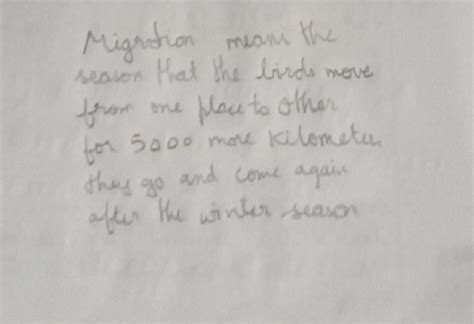 Migration means the
season that the birds move
from one place to other
for 5000 more kilometer,
they go and come again
after the winter season